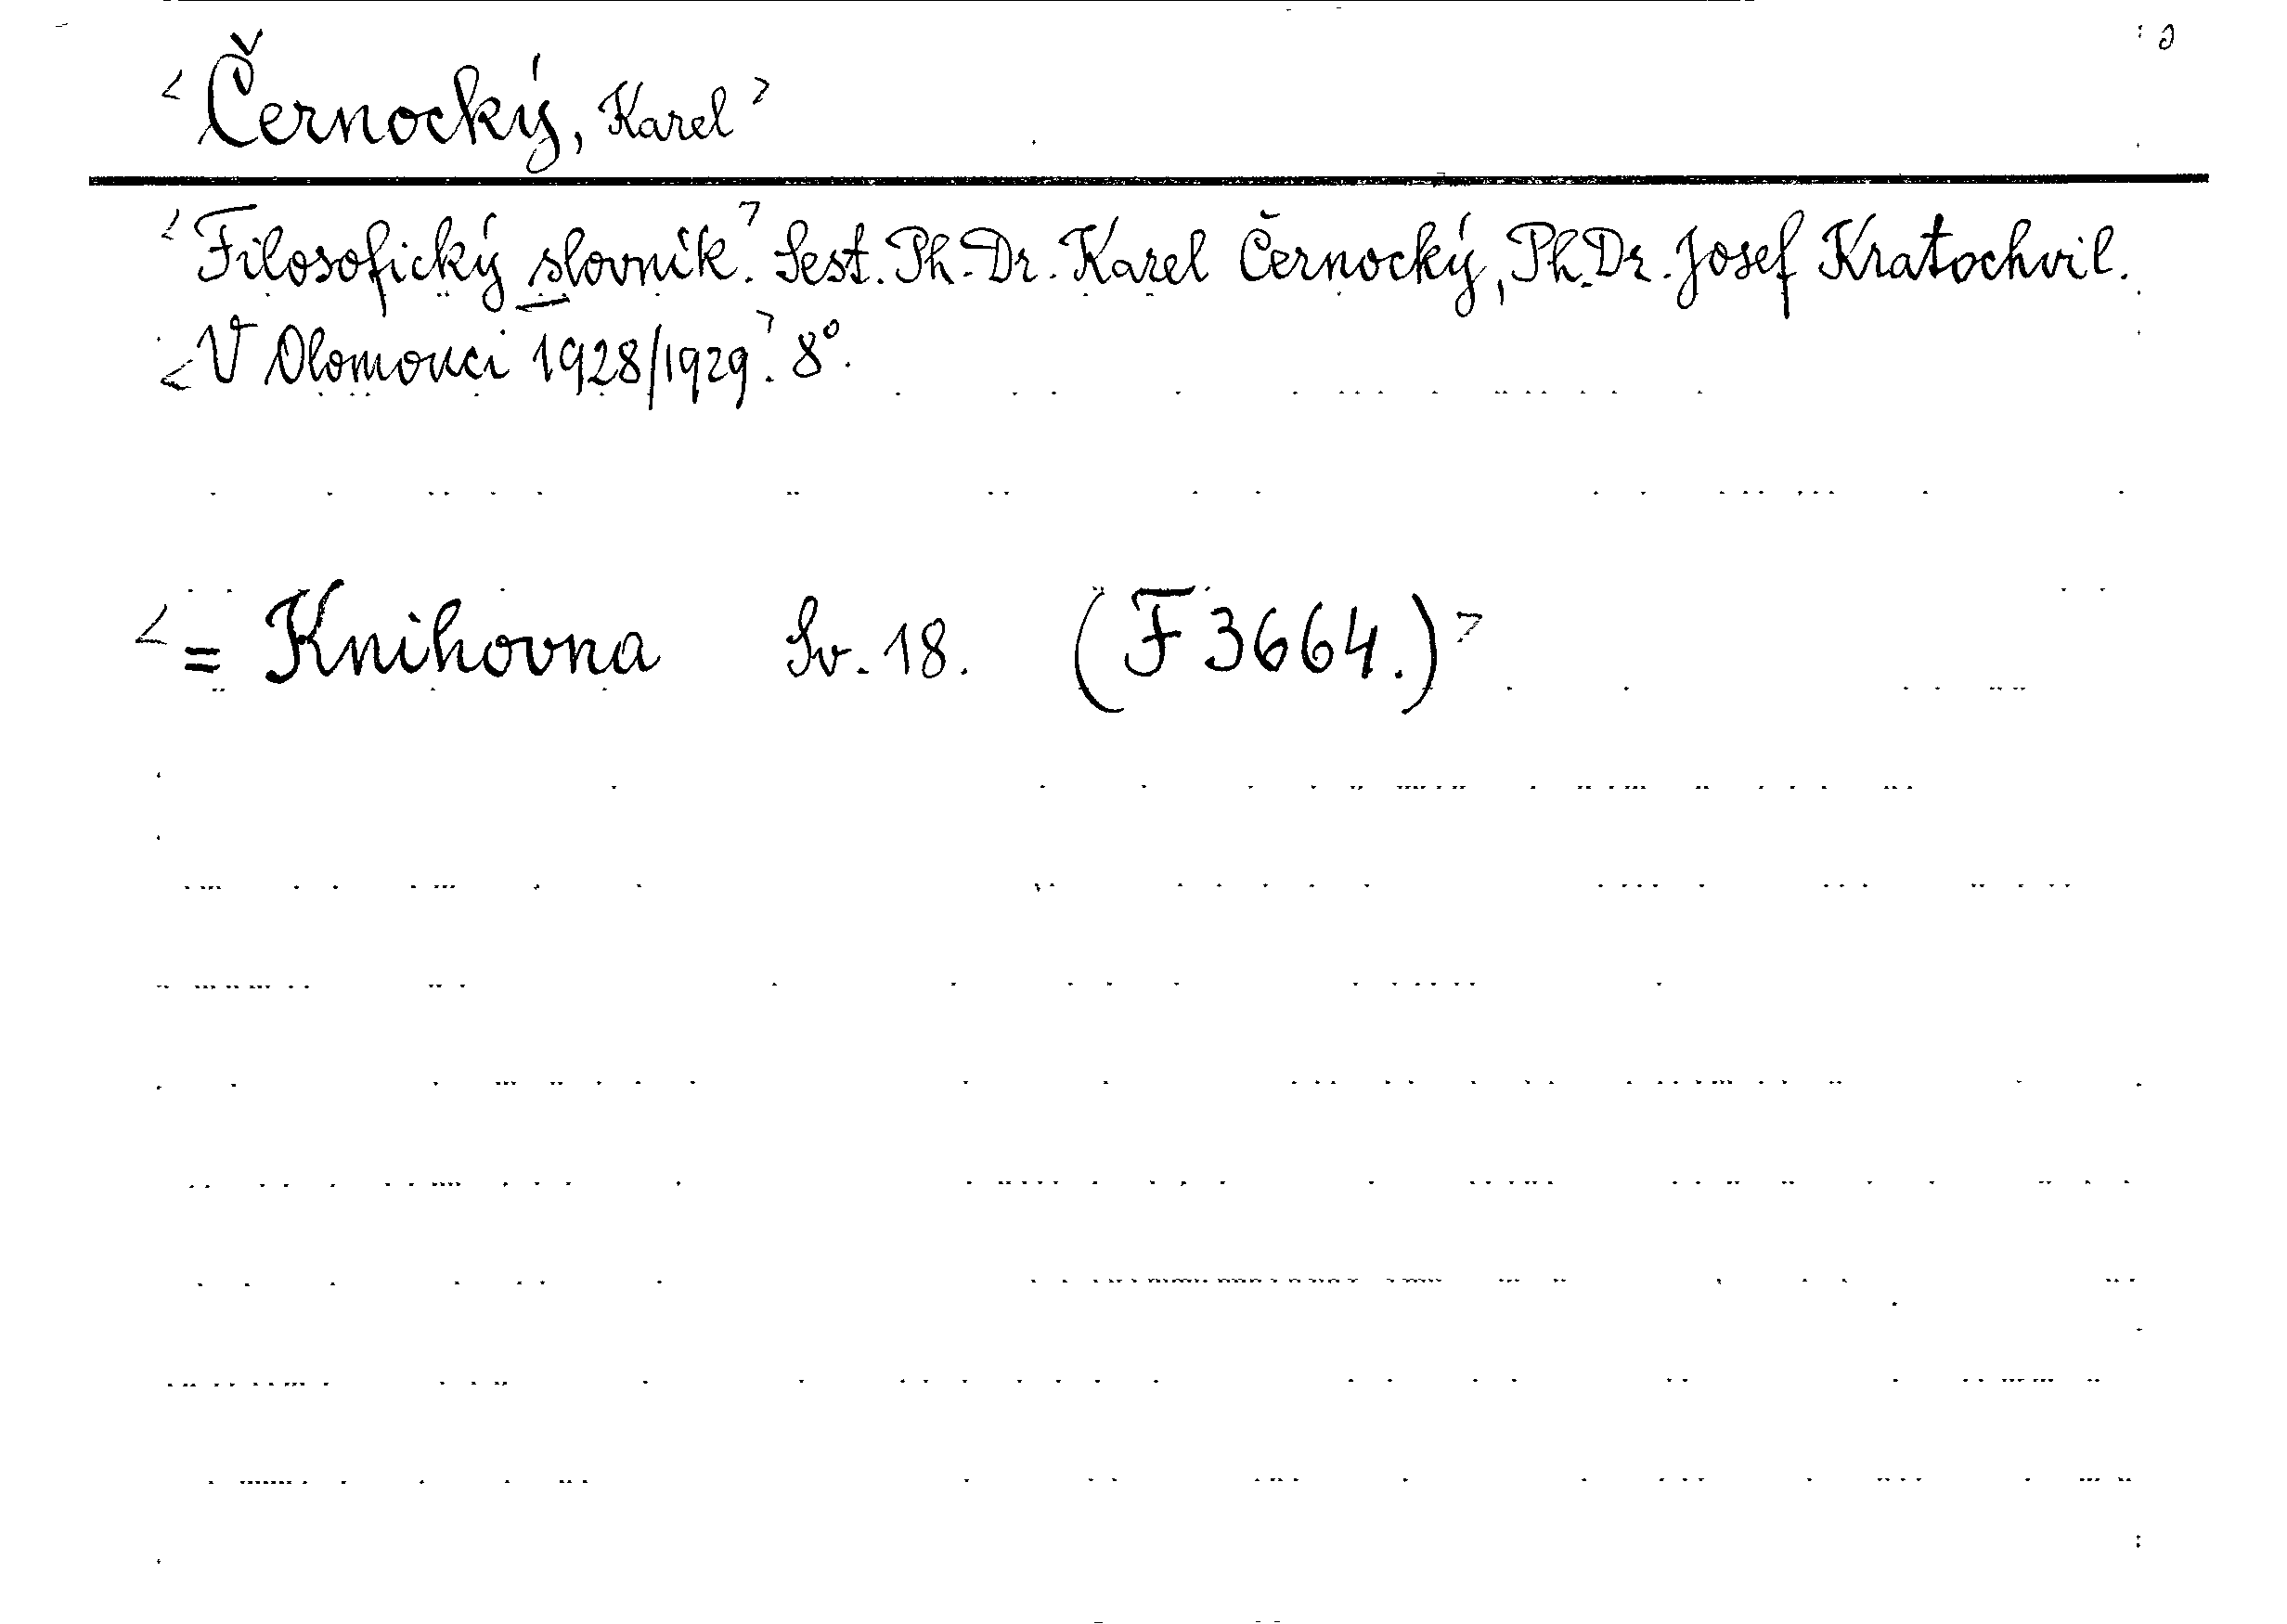 <Černocký, Karel>
<Filosofický slovník.> Sest. Ph. Dr. Karel Černocký, Ph. Dr. Josef Kratochvil.
<V Olomouci 1928/1929.> 8°.
<= Knihovna Sv. 18. (F 3664.)>